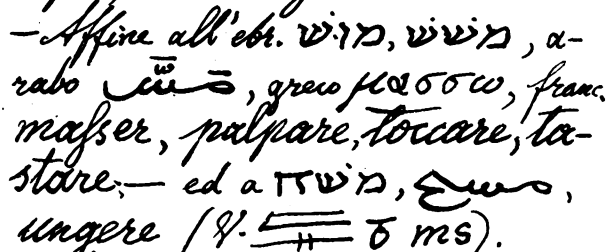 —Affine all'ebr. מוּשׁ, משׁשׁ, a-
rabo مَسَّ, greco μασσω, franc.
maſser, palpare, toccare, ta-
stare; — ed a משׁח, مسح,
ungere (V. ms).